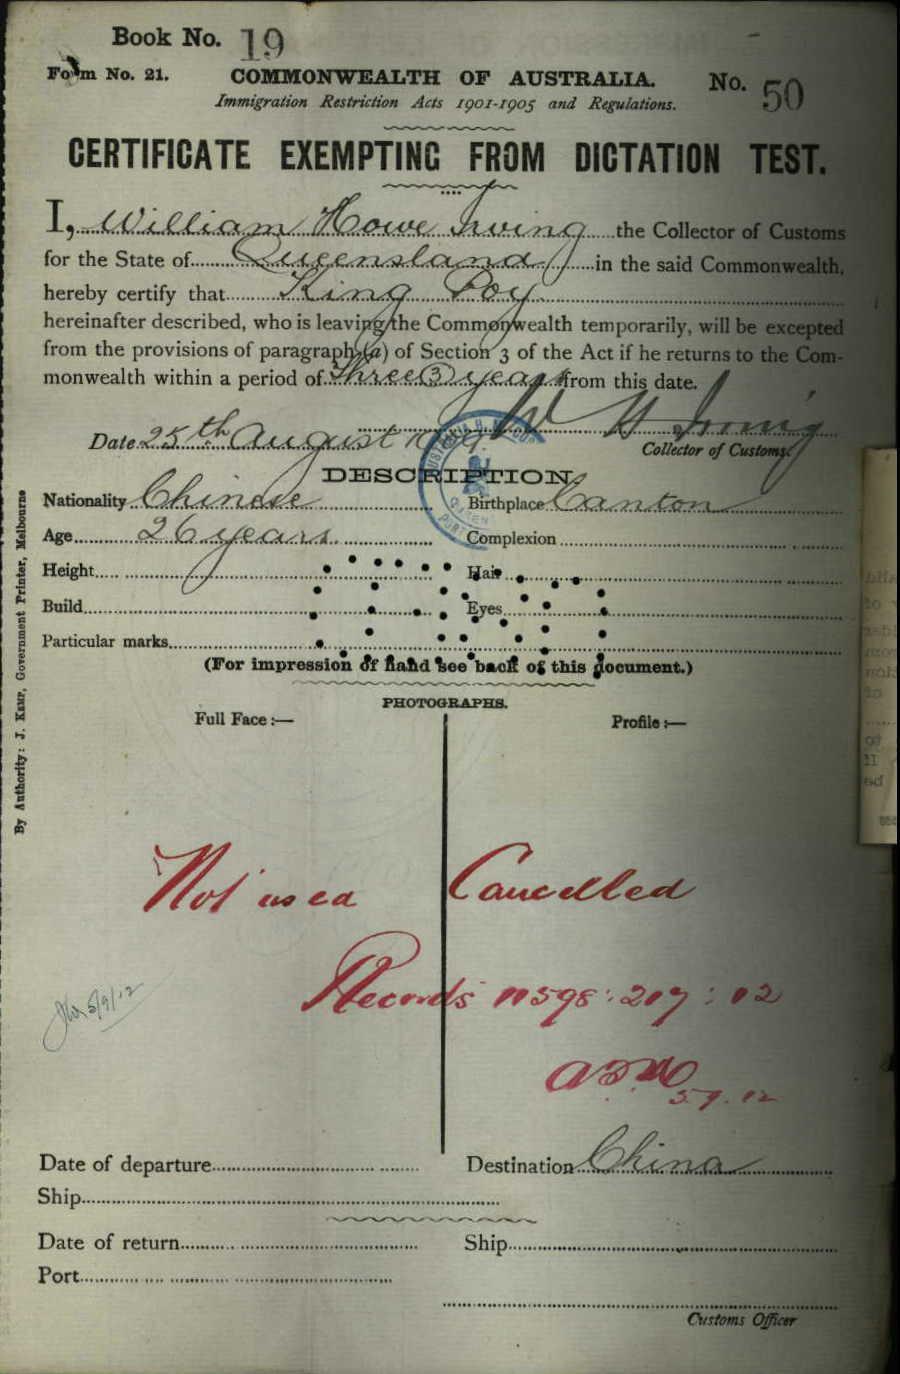 Book No. 19
Form No. 21. COMMONWEALTH OF AUSTRALIA. No. 50
Immigration Restriction Acts 1901-1905 and Regulations.
CERTIFICATE EXEMPTING FROM DICTATION TEST.
I, William Howe Irving the Collector of Customs
for the State of Queensland in the said Commonwealth,
hereby certify that King Poy
hereinafter described, who is leaving the Commonwealth temporarily, will be excepted
from the provisions of paragraph (a) of Section 3 of the Act if he returns to the Com-
monwealth within a period of three (3) years from this date.
W H Irving
Date 25th August 1909. Collector of Customs.
DESCRIPTION
Nationality Chinese Birthplace Canton
Age 26 years. Complexion
Height Hair
Build Eyes
Particular marks
(For impression of hand see back of this document.)
PHOTOGRAPHS.
Full Face :— Profile :—
By Authority: J. Kemp, Government Printer, Melbourne
Not used Cancelled
Records 11598:207:02
5/9/12
5.9.12
Date of departure Destination China
Ship
Date of return Ship
Port
Customs Officer